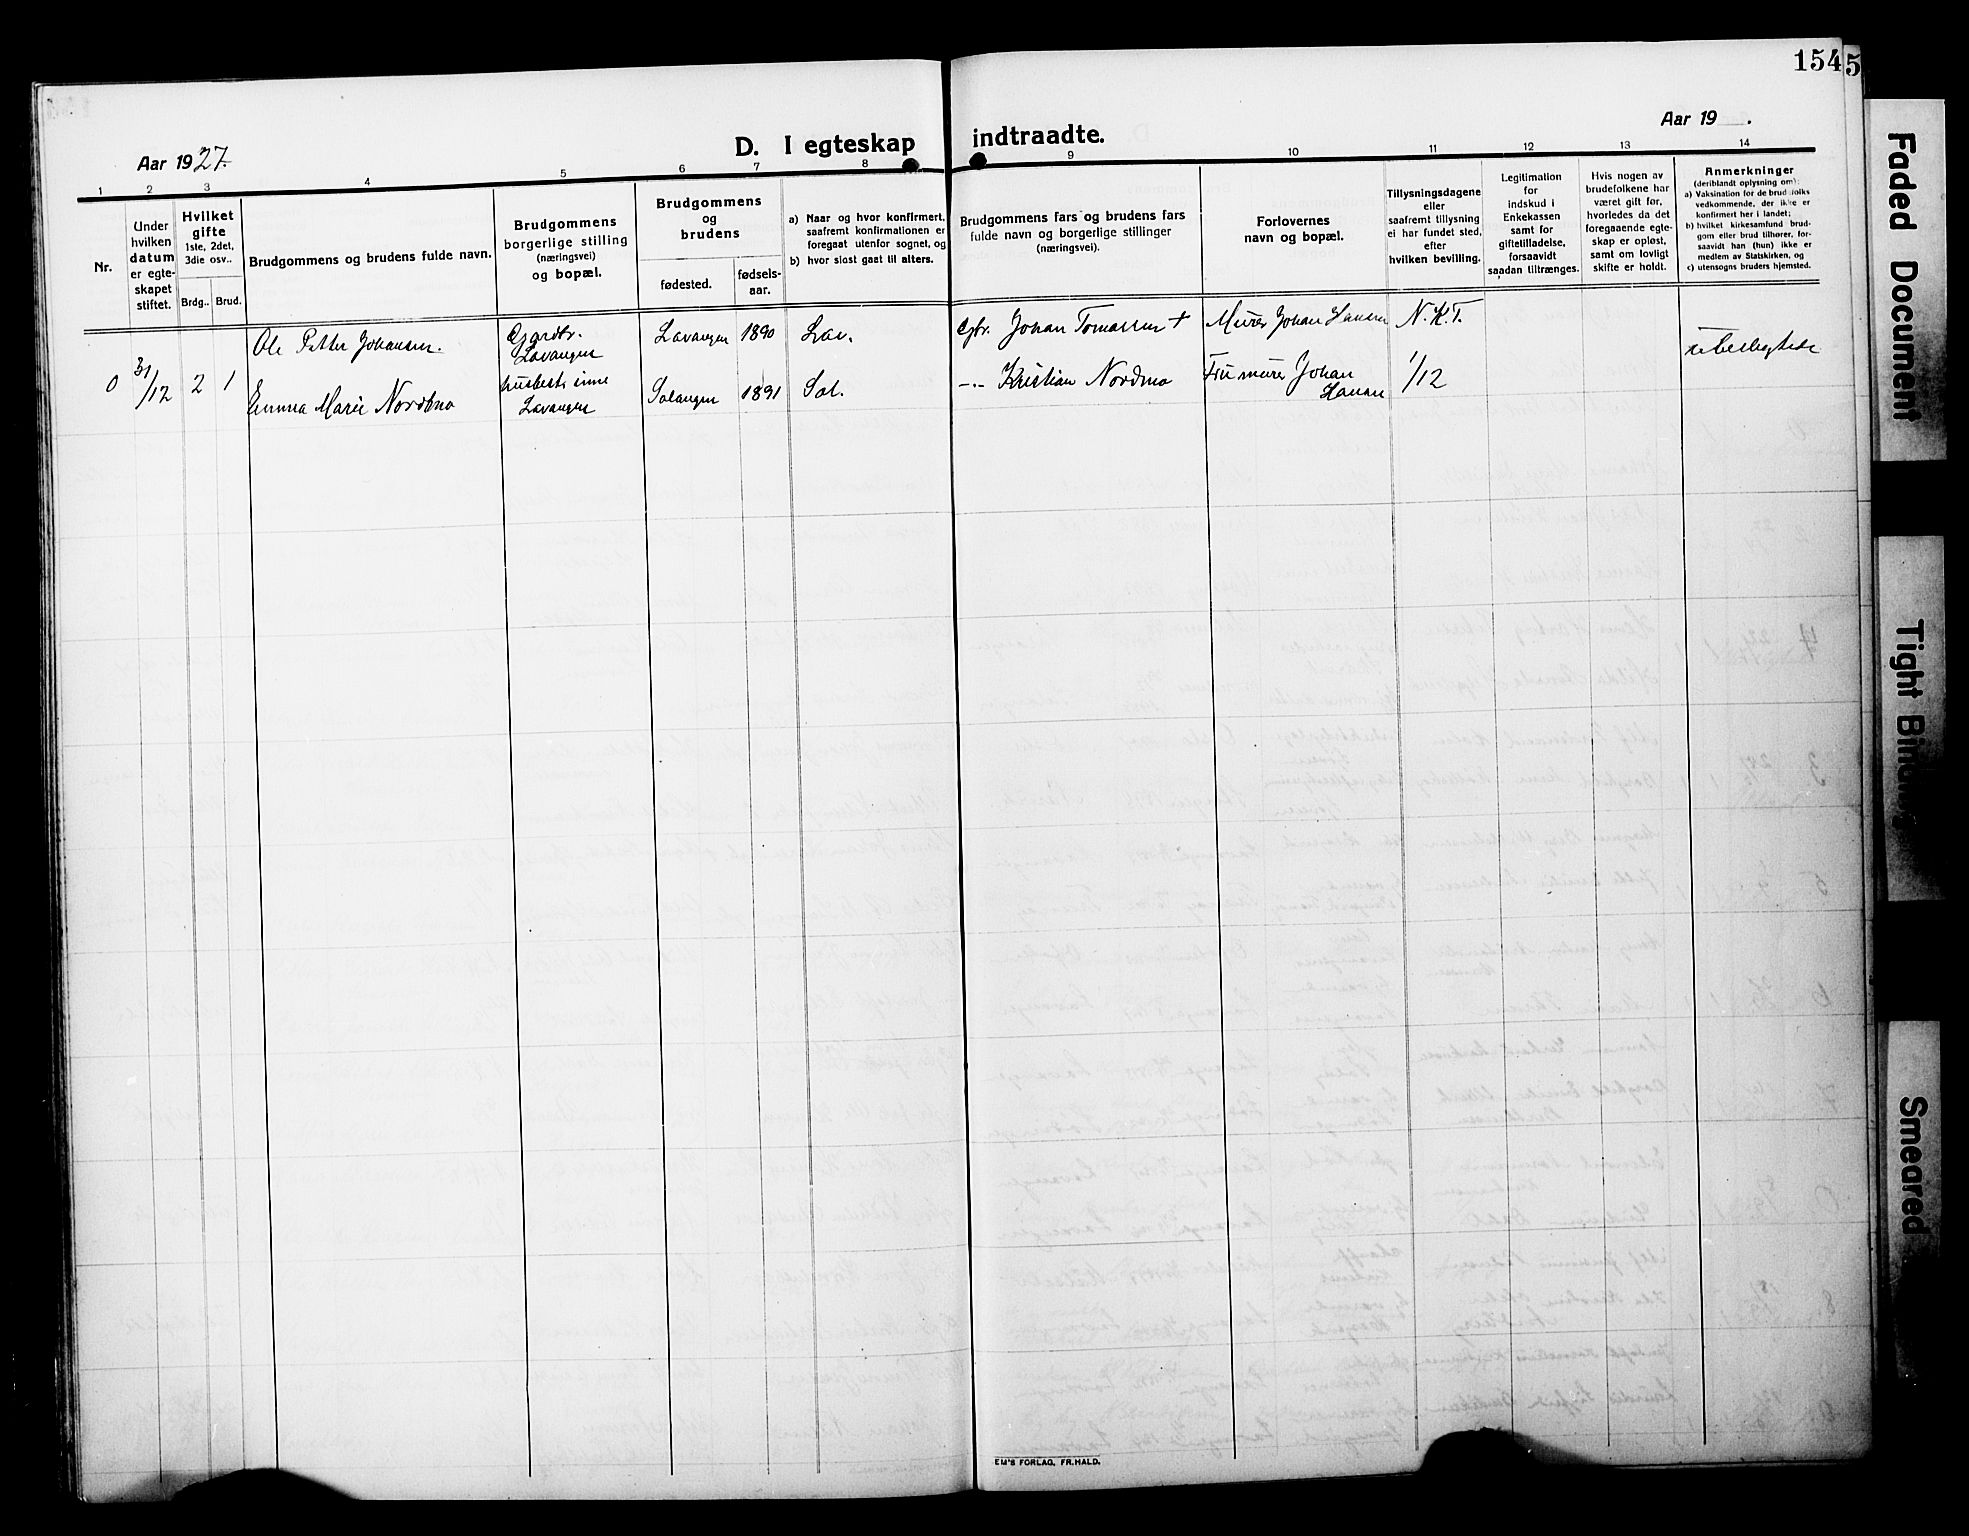 154
5
Aar 1927.
D. I egteskap indtraadte.
Aar 19 .
1 2 3 4 5 6 7 8 9 10 11 12 13 14
Nr.
Under
hvilken
datum
er egte-
skapet
stiftet.
Hvilket
gifte
1ste, 2det,
3die osv..
Brdg.. Brud.
Brudgommens og brudens fulde navn.
Brudgommens
borgerlige stilling
(næringsvei)
og bopæl.
Brudgommens
og
brudens
fødested.
fødsels-
aar.
a) Naar og hvor konfirmert,
saafremt konfirmationen er
foregaat utenfor sognet, og
b) hvor sidst gaat til alters.
Brudgommens fars og brudens fars
fulde navn og borgerlige stillinger
(næringsvei).
Forlovernes
navn og bopæl.
Tillysningsdagene
eller
saafremt tillysning
ei har fundet sted,
efter
hvilken bevilling.
Legitimation
for
indskud i
Enkekassen
samt for
giftetilladelse,
forsaavidt
saadan tiltrænges.
Hvis nogen av
brudefolkene har
været gift før,
hvorledes da det
foregaaende egte-
skap er opløst,
samt om lovligt
skifte er holdt.
Anmerkninger
(deriblandt oplysning om):
a) Vaksination for de brudfolks
vedkommende, der ikke er
konfirmert her i landet;
b) hvilket kirkesamfund brud-
gom eller brud tilhører, for-
saavidt han (hun) ikke er
medlem av Statskirken, og
c) utensogns bruders hjemsted.
0 31/12 2 1
Ole Petter Johansen. Gaardbr. Lavangen Lavangen 1890 Lav. Gbr. Johan Tomassen + Murer Johan Hansen N.K.T.
Emma Marie Nordmo Lavangen Salangen 1891 Sal. -.- Kristian Nordmo Fru murer Johan Hansen 1/12
ubeslegtede
EM'S FORLAG, FR.HALD.
Faded Document
Tight Binding
Smeared